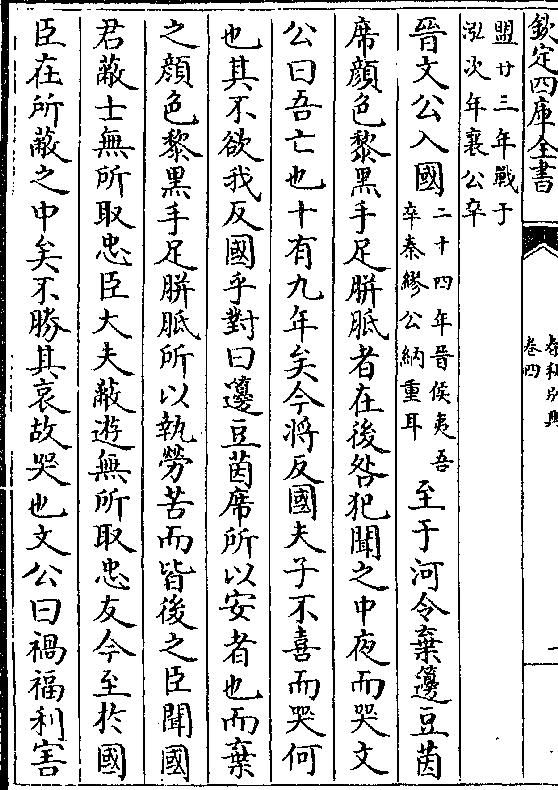 欽定四庫全書
春秋別典
卷四
一
盟廿三年戰于
泓次年襄公卒
晉文公入國二十四年晉侯夷吾
卒秦繆公納重耳至于河令棄籩豆茵
席顔色黎黑手足胼胝者在後咎犯聞之中夜而哭文
公曰吾亡也十有九年矣今將反國夫子不喜而哭何
也其不欲我反國乎對曰籩豆茵席所以安者也而棄
之顔色黎黑手足胼胝所以執勞苦而皆後之臣聞國
君蔽士無所取忠臣大夫蔽遊無所取忠友今至於國
臣在所蔽之中矣不勝其哀故哭也文公曰禍福利害